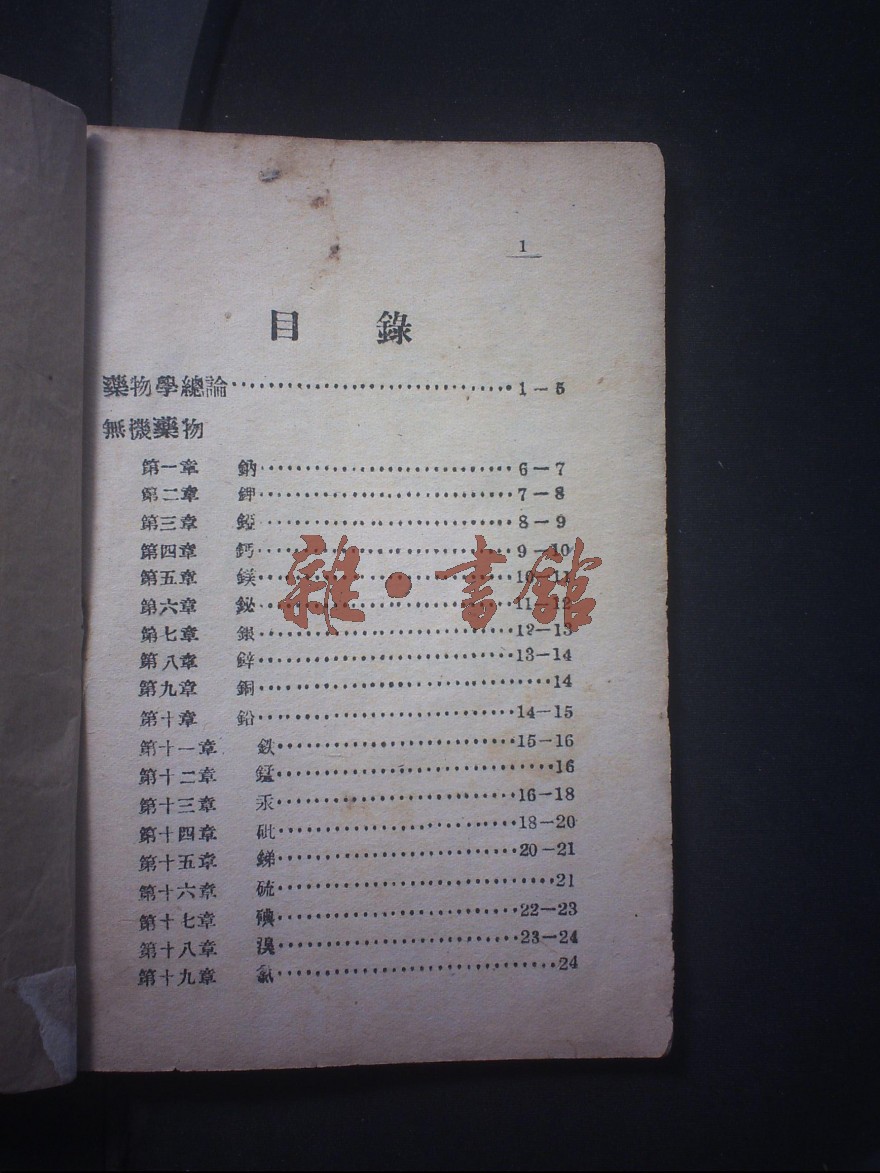 1
目 錄
藥物學總論…………………………1—5
無機藥物
第一章 鈉…………………………6—7
第二章 鉀…………………………7—8
第三章 錏…………………………8—9
第四章 鈣…………………………9—10
第五章 鎂…………………………10—11
第六章 鉍…………………………11—12
第七章 銀…………………………12—13
第八章 鋅…………………………13—14
第九章 銅…………………………14
第十章 鉛…………………………14—15
第十一章 鉄…………………………15—16
第十二章 錳…………………………16
第十三章 汞…………………………16—18
第十四章 砒…………………………18—20
第十五章 銻…………………………20—21
第十六章 硫…………………………21
第十七章 碘…………………………22—23
第十八章 溴…………………………23—24
第十九章 氯…………………………24
雜·書館